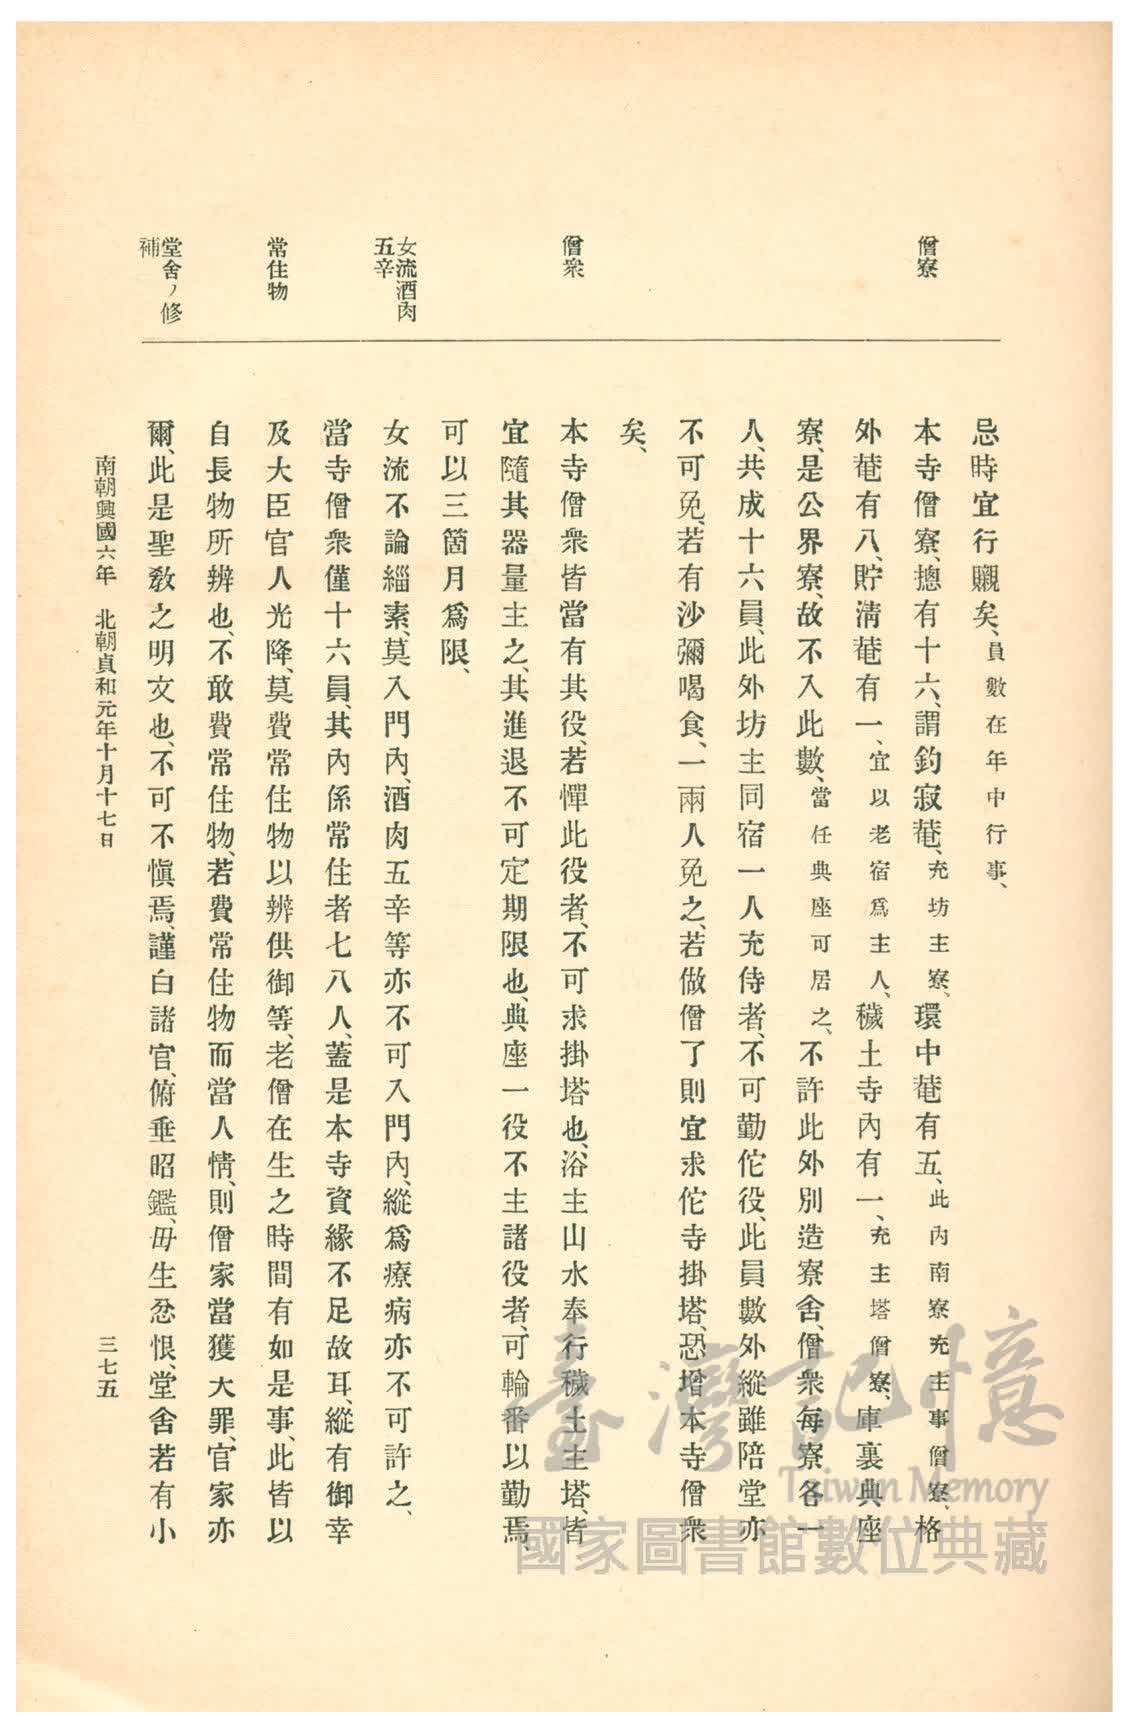 僧寮
僧衆
女流酒肉
五辛
常住物
堂舍ノ修
補
忌時宜行贈矣、員數在年中行事、
本寺僧寮、摠有十六、謂釣寂菴、充坊主寮、環中菴有五、此內南寮充主事僧寮、格
外菴有八、貯淸菴有一、宜以老宿爲主人、穢土寺內有一、充主塔僧寮、庫裏典座
寮、是公界寮、故不入此數、當任典座可居之、不許此外別造寮舍、僧衆每寮各一
人、共成十六員、此外坊主同宿一人充侍者、不可勤佗役、此員數外縱雖陪堂亦
不可免、若有沙彌喝食、一兩人免之、若做僧了則宜求佗寺掛塔、恐增本寺僧衆
矣、
本寺僧衆皆當有其役、若憚此役者、不可求掛塔也、浴主山水奉行穢土主塔、皆
宜隨其器量主之、其進退不可定期限也、典座一役不主諸役者、可輪番以勤焉、
可以三箇月爲限、
女流不論緇素、莫入門內、酒肉五辛等亦不可入門內、縱爲療病亦不可許之、
當寺僧衆僅十六員、其內係常住者七八人、蓋是本寺資緣不足故耳、縱有御幸
及大臣官人光降、莫費常住物以辨供御等、老僧在生之時間有如是事、此皆以
自長物所辨也、不敢費常住物、若費常住物而當人情、則僧家當獲大罪、官家亦
爾、此是聖敎之明文也、不可不愼焉、謹白諸官、俯垂昭鑑、毋生忿恨、堂舍若有小
南朝興國六年 北朝貞和元年十月十七日
三七五
臺灣記憶
Taiwan Memory
國家圖書館數位典藏